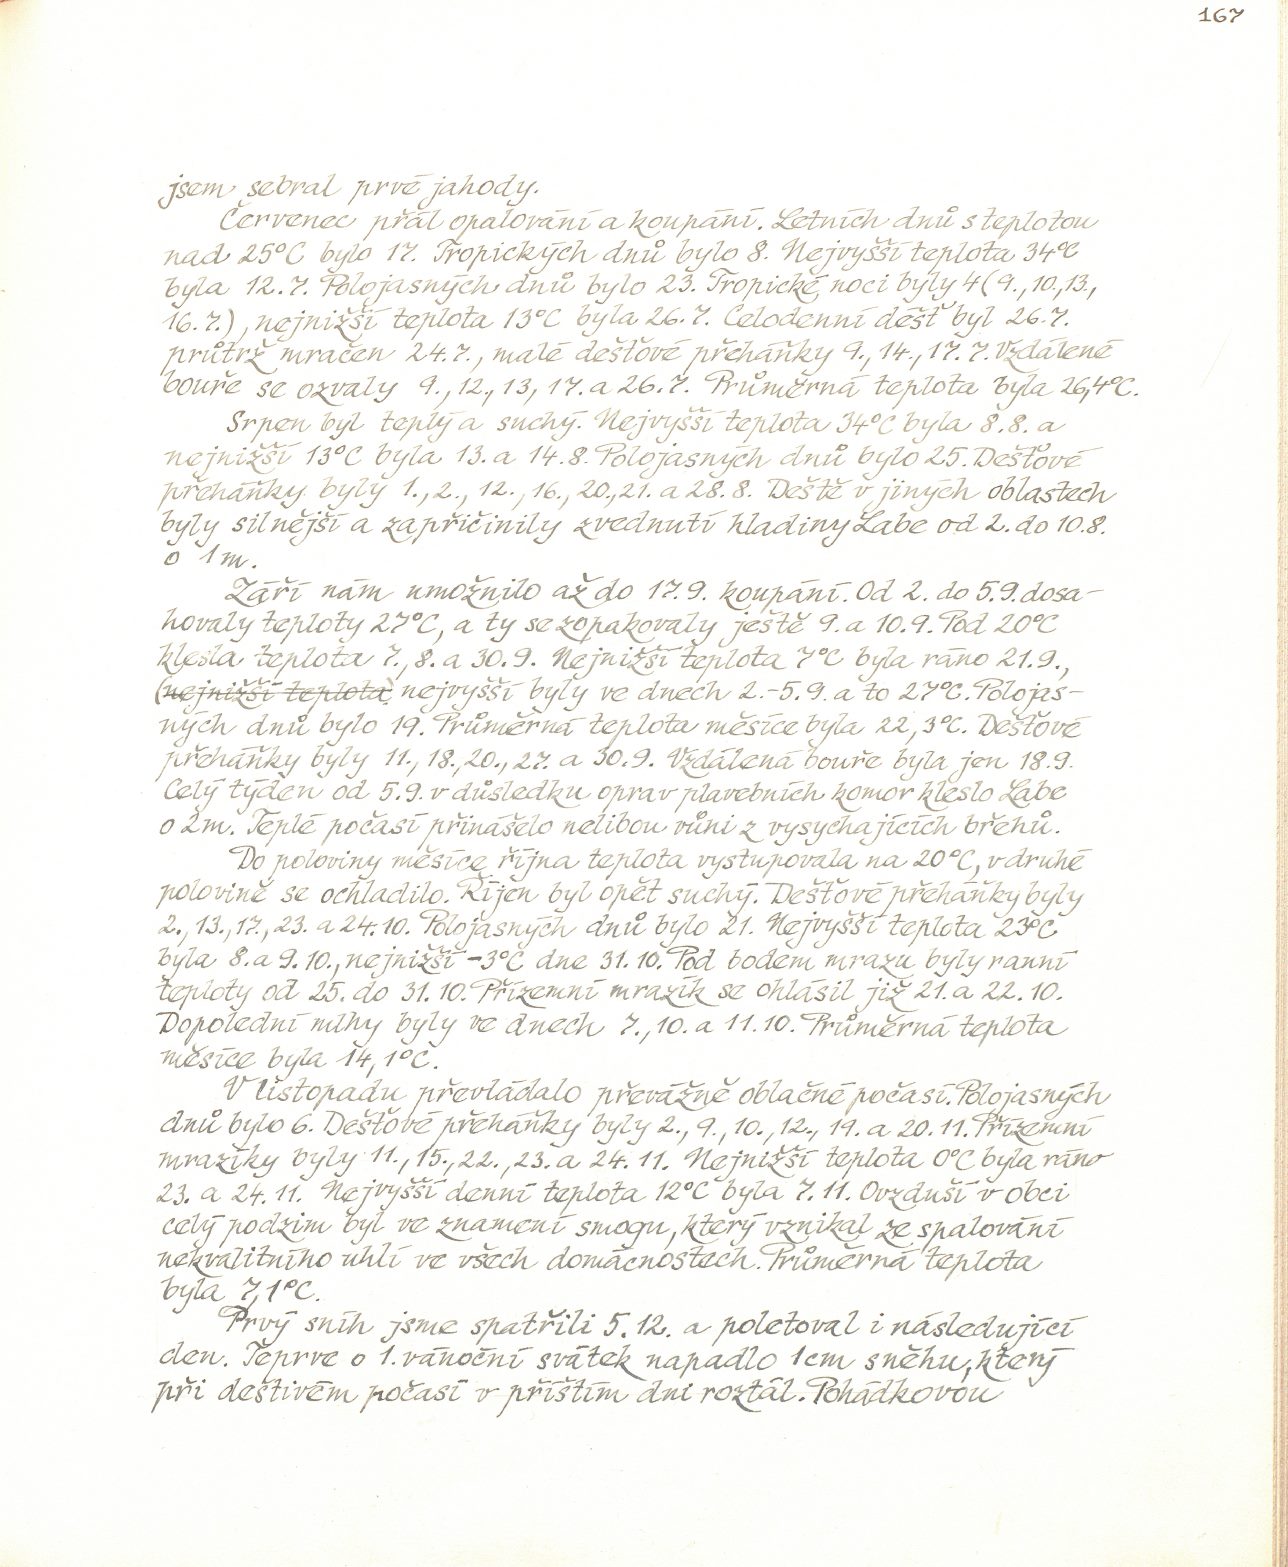 167
jsem sebral prvé jahody.
Červenec přál opalování a koupání. Letních dnů s teplotou
nad 25°C bylo 17. Tropických dnů bylo 8. Nejvyšší teplota 34°C
byla 12.7. Polojasných dnů bylo 23. Tropické noci byly 4 (9., 10., 13.,
16.7.), nejnižší teplota 13°C byla 26.7. Celodenní déšť byl 26.7.
průtrž mračen 24.7., malé dešťové přeháňky 9., 14., 17.7. Vzdálené
bouře se ozvaly 9., 12., 13, 17. a 26.7. Průměrná teplota byla 26,4°C.
Srpen byl teplý a suchý. Nejvyšší teplota 34°C byla 8.8. a
nejnižší 13°C byla 13. a 14.8. Polojasných dnů bylo 25. Dešťové
přeháňky byly 1., 2., 12., 16., 20., 21. a 28.8. Deště v jiných oblastech
byly silnější a zapřičinily zvednutí hladiny Labe od 2. do 10.8.
o 1 m.
Září nám umožnilo až do 17.9. koupání. Od 2. do 5.9. dosa-
hovaly teploty 27°C, a ty se zopakovaly ještě 9. a 10.9. Pod 20°C
klesla teplota 7., 8. a 30.9. Nejnižší teplota 7°C byla ráno 21.9.,
(nejnižší teplota) nejvyšší byly ve dnech 2.-5.9. a to 27°C. Polojas-
ných dnů bylo 19. Průměrná teplota měsíce byla 22,3°C. Dešťové
přeháňky byly 11., 18., 20., 27. a 30.9. Vzdálená bouře byla jen 18.9.
Celý týden od 5.9. v důsledku oprav plavebních komor kleslo Labe
o 2m. Teplé počasí přinášelo nelibou vůni z vysychajících břehů.
Do poloviny měsíce října teplota vystupovala na 20°C, v druhé
polovině se ochladilo. Říjen byl opět suchý. Dešťové přeháňky byly
2., 13., 17., 23. a 24.10. Polojasných dnů bylo 21. Nejvyšší teplota 23°C
byla 8. a 9.10., nejnižší -3°C dne 31.10. Pod bodem mrazu byly ranní
teploty od 25. do 31.10. Přízemní mrazík se ohlásil již 21. a 22.10.
Dopolední mlhy byly ve dnech 7., 10. a 11.10. Průměrná teplota
měsíce byla 14,1°C.
V listopadu převládalo převážně oblačné počasí. Polojasných
dnů bylo 6. Dešťové přeháňky byly 2., 9., 10., 12., 19. a 20.11. Přízemní
mrazíky byly 11., 15., 22., 23. a 24.11. Nejnižší teplota 0°C byla ráno
23. a 24.11. Nejvyšší denní teplota 12°C byla 7.11. Ovzduší v obci
celý podzim byl ve znamení smogu, který vznikal ze spalování
nekvalitního uhlí ve všech domácnostech. Průměrná teplota
byla 7,1°C.
Prvý sníh jsme spatřili 5.12. a poletoval i následující
den. Teprve o 1. vánoční svátek napadlo 1cm sněhu, který
při deštivém počasí v příštím dni roztál. Pohádkovou